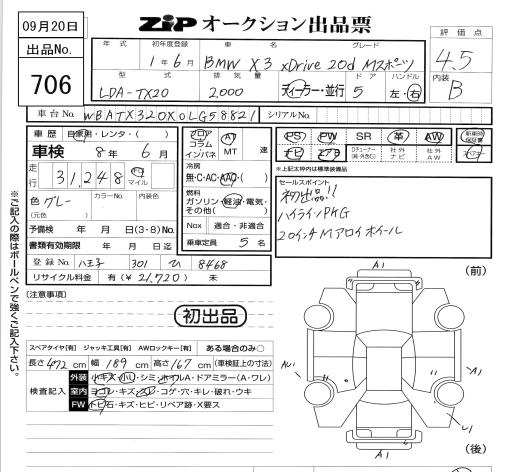 09月20日
出品No.
706
ZIP オークション出品票
評価点
4.5
内装
B
年式 初年度登録 車名 グレード
1年6月 BMW X3 xDrive 20d Mスポーツ
型式 排気量 ドア ハンドル
LDA-TX20 2,000 ディーラー・並行 5 左・右
車台No. WBATX320X0LG58821 シリアルNo.
車歴 自家用・レンタ・( )
車検 8年 6月
走行 31,248 マイル
色 グレー カラーNo. 内装色
(元色)
予備検 年 月 日(3・8)No.
書類有効期限 年 月 日迄
登録No. 八王子 301 ひ 8468
リサイクル料金 有(¥ 21,720) 未
フロア コラム インパネ AT MT 速
冷房
無・C・AC・AAC・( )
燃料
ガソリン・軽油・電気・その他( )
Nox 適合・非適合
乗車定員 5 名
PS PW SR 革 AW 新車時保証書
ナビ エアB Dチューナー(純・社外含) 社外ナビ 社外AW
※上記太枠内は標準装備品
セールスポイント
初出品!!
ハイラインPKG
20インチMアロイホイール
※ご記入の際はボールペンで強くご記入下さい。
(注意事項)
初出品
スペアタイヤ[有] ジャッキ工具[有] AWロックキー[有] ある場合のみ○
長さ 472 cm 幅 189 cm 高さ 167 cm (車検証上の寸法)
検査記入
外装 小キズ・小凹・シミ・ホイルA・ドアミラー(A・ワレ)
室内 ヨゴレ・キズ・スレ・コゲ・穴・キレ・破れ・ウキ
FW トビ石・キズ・ヒビ・リペア跡・X要ス
(前)
A1
A1
A1
(後)